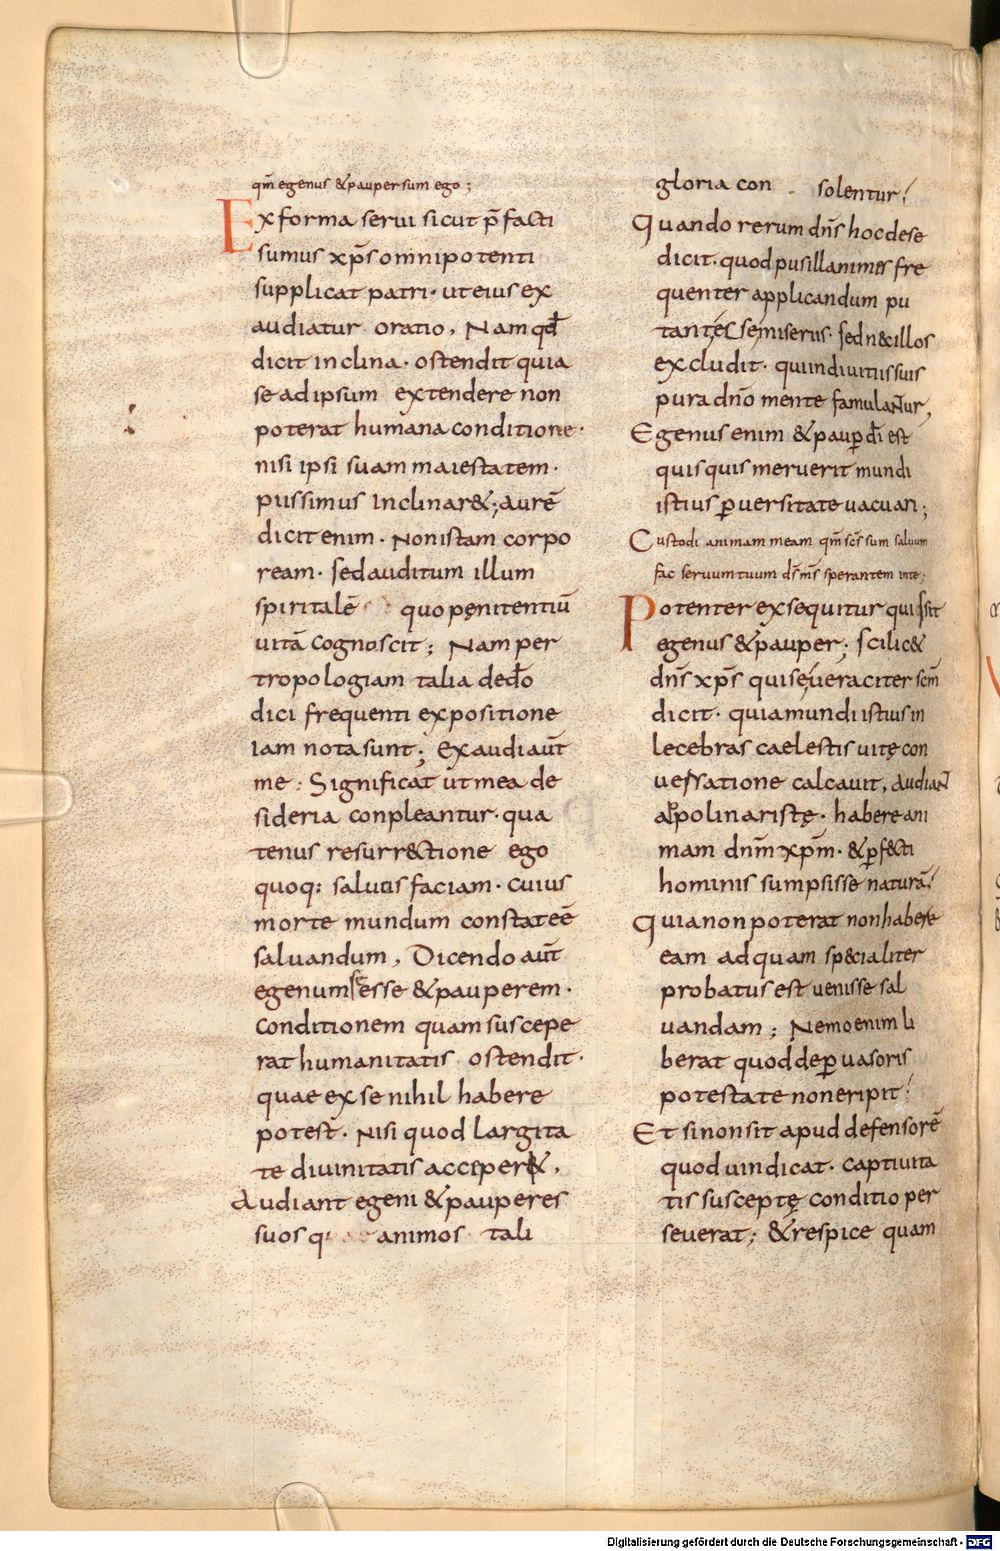 qm̄ egenus & pauper sum ego;
Ex forma serui sicut p̄facti
sumus xp̄s omnipotenti
supplicat patri · ut eius ex
audiatur oratio, Nam qđ
dicit inclina · ostendit quia
se ad ipsum extendere non
poterat humana conditione ·
nisi ipsi suam maiestatem ·
piissimus inclinar&; aurē
dicit enim · Non istam corpo
ream · sed auditum illum
spiritalē quo pęnitentiū
uitā cognoscit; Nam per
tropologiam talia de dō
dici frequenti expositione
iam nota sunt; Exaudi aūt
me: Significat ut mea de
sideria conpleantur · qua
tenus resurr&ctione ego
quoq: salutis faciam · cuius
morte mundum constat eē
saluandum, Dicendo aūt
egenum se esse & pauperem ·
conditionem quam suscepe
rat humanitatis ostendit ·
quae ex se nihil habere
potest · Nisi quod largita
te diuinitatis acciper&,
Audiant egeni & pauperes
suos animos tali
gloria con solentur!
Quando rerum dn̄s hoc de se
dicit · quod pusillanimes fre
quenter applicandum pu
tant, sed n& illos
excludit · qui in diuitiis suis
pura dn̄o mente famulantur,
Egenus enim & paup̱ dī est
quisquis meruerit mundi
istius p̱uersitate uacuari;
Custodi animam meam qm̄ sc̄s sum saluum
fac seruum tuum ds̄ ms̄ sperantem in te;
Potenter exsequitur qui sit
egenus & pauper; scilic&
dn̄s xp̄s qui se ueraciter sc̄m
dicit · quia mundi istius in
lecebras caelestis uitę con
uersatione calcauit, Audiant
appolinaristę · habere ani
mam dn̄m xp̄m · & p̱f&cti
hominis sumpsisse naturā!
Quia non poterat non habere
eam ad quam sp&cialiter
probatus est uenisse sal
uandam; Nemo enim li
berat quod de p̱uasoris
potestate non eripit!
Et si non sit apud defensorē
quod uindicat · captiuita
tis susceptę conditio per
seuerat; & respice quam
Digitalisierung gefördert durch die Deutsche Forschungsgemeinschaft - DFG